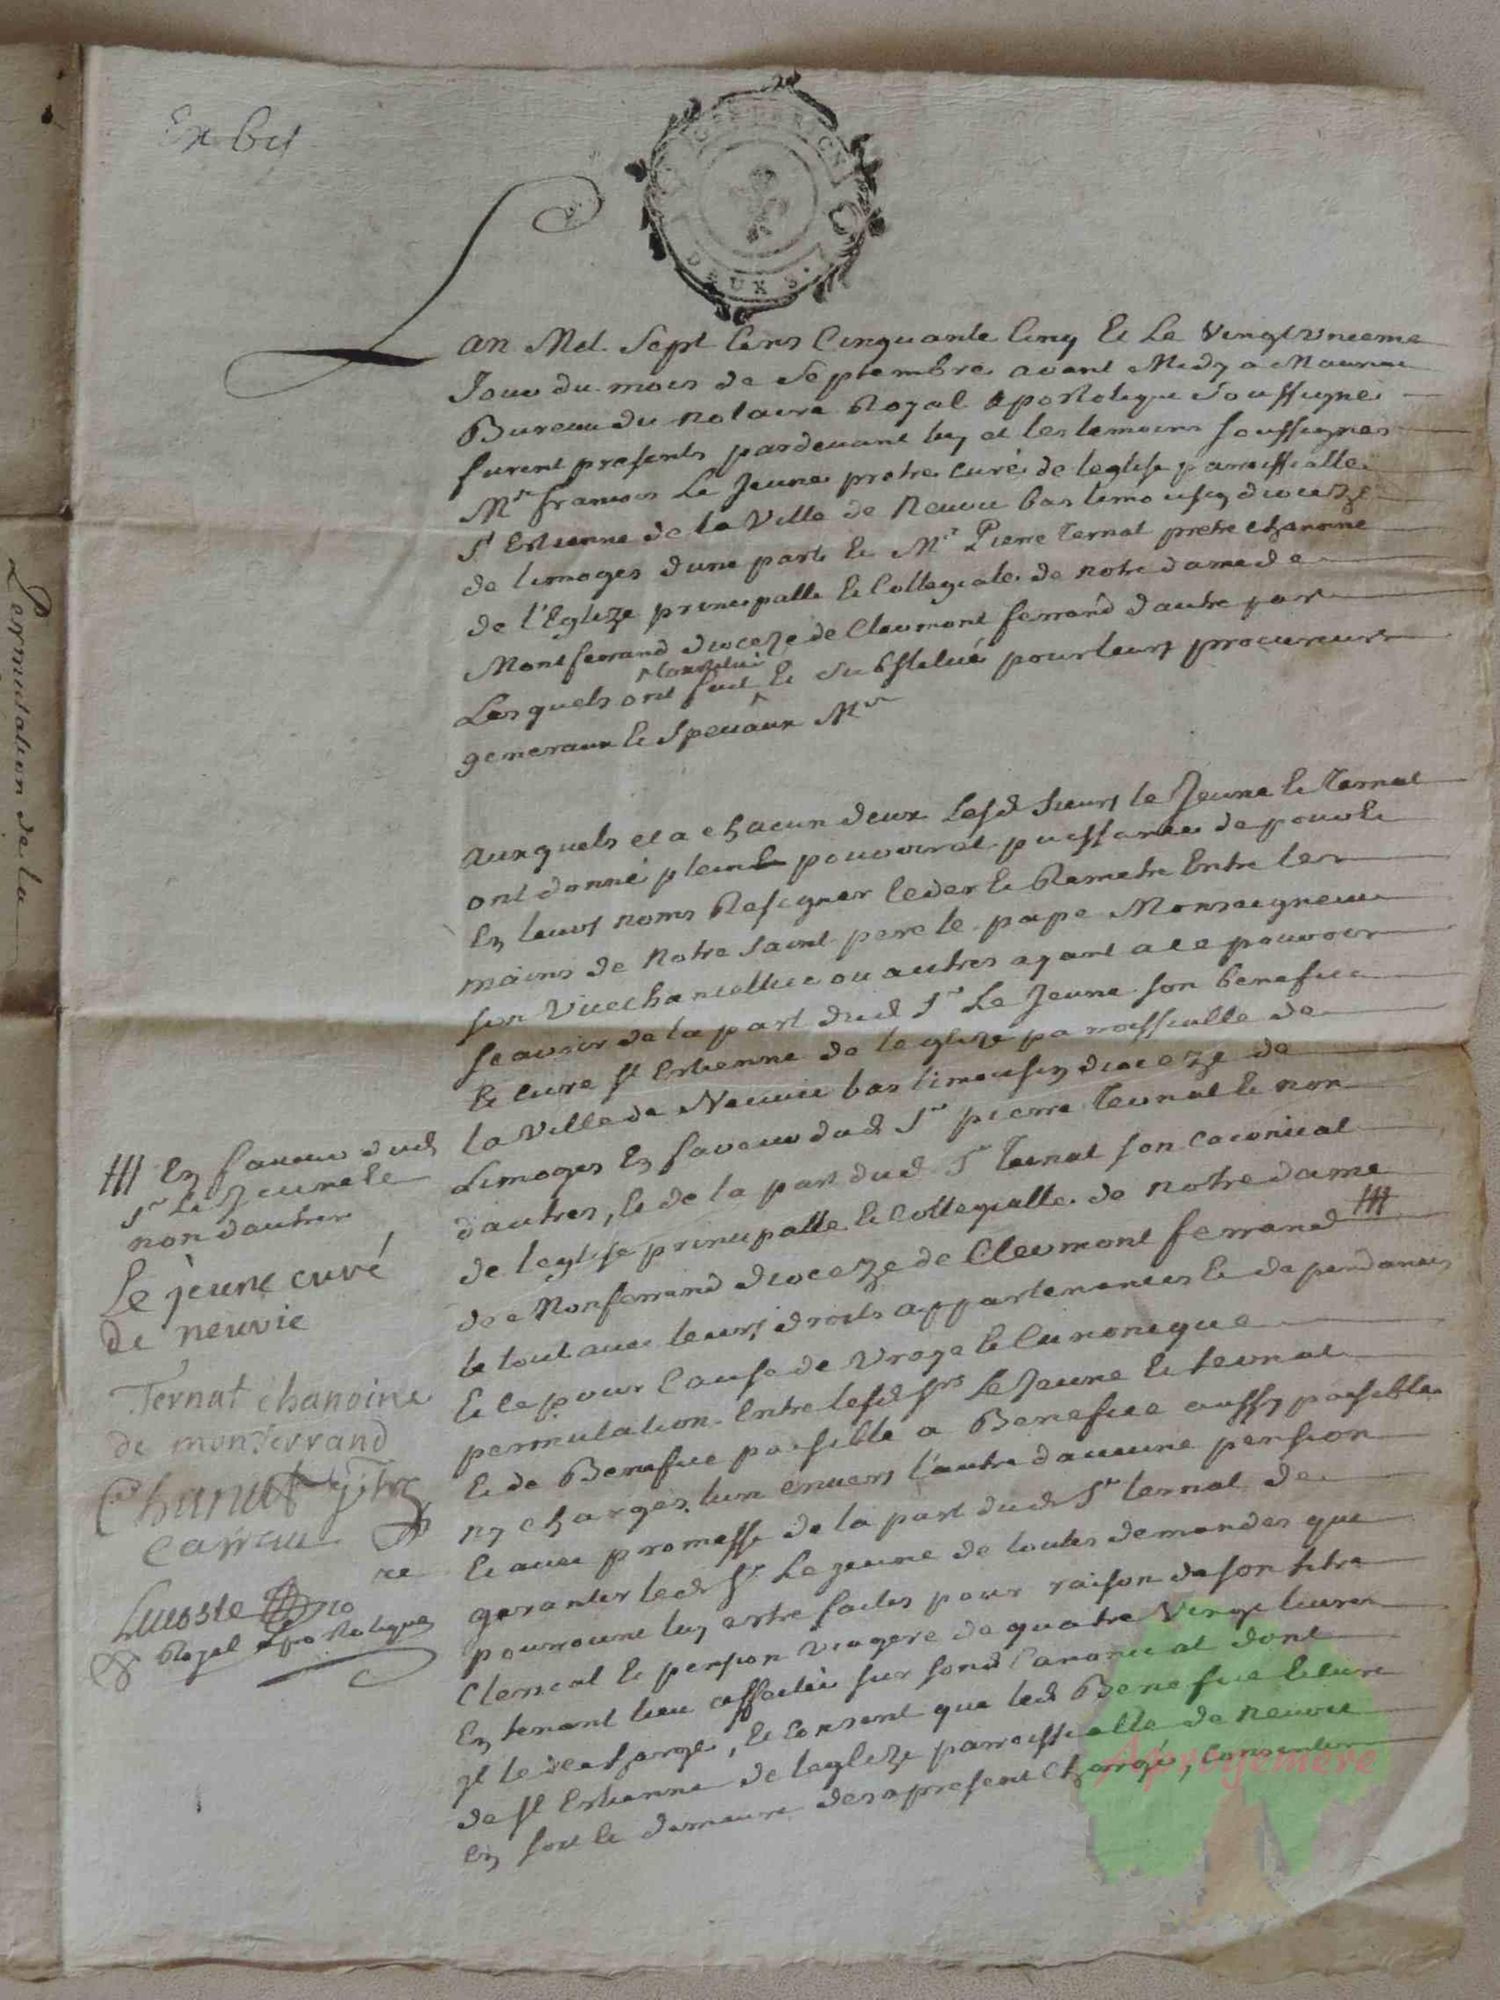 DEUX S.
L'an Mil Sept Cens Cinquante Cinq Et Le Vingt Vnieme
Jour du mois de Septembre avant Midy a Mauriac
Bureau du Notaire Royal Apostolique Soussigné
furent presents pardevant luy et les temoins soussignes
Mre francois Le Jeune pretre curé de leglise parroissialle
St Estienne de la Ville de Neuvic bas limousin dioceze
de limoges dune part Et Mre Pierre Ternat pretre chanoine
de l'Eglize principalle Et Collegiale de notre dame de
Montferrand dioceze de Clermont ferrand d'autre part
constitué
Les quels ont fait Et substitué pour leurs procureurs
generaux Et speciaux Mre
Auxquels et a chacun deux Lesd sieurs le Jeune Et Ternat
ont donné plein pouvoir et puissance de pour Et
En leurs noms Resigner Ceder Et Remetre Entre les
mains de Notre Saint pere le pape Monseigneur
son Vicechancellier ou autres ayant a ce pouvoir
scavoir de la part dud Sr Le Jeune son benefice
Et cure St Estienne de leglize parroissialle de
la Ville de Neuvic bas limousin dioceze de
Limoges En faveur dud Sr pierre Ternat Et non
d'autres, Et de la part dud Sr Ternat son canonicat
de leglise principalle Et Collegialle de notre dame
de Monferrand dioceze de Clermont ferrand ###
le tout avec leurs droits appartenances Et dependances
Et ce pour Cause de Vraye Et Canonique
permutation Entre lesd Srs Le Jeune Et ternat
Et de Benefice paisible a Benefice aussy paisible
ny charges lun envers l'autre d'aucune pension
Et avec promesse de la part dud Sr ternat de
garantir led Sr Le jeune de toutes demandes que
pourroient luy estre faites pour raison de son titre
Clerical Et pension viagere de quatre Vingt livres
En tenant lieu affectée sur sond Canonicat dont
il le decharge, Et Consent que led Benefice Et cure
de St Estienne de leglize parroissialle de Neuvic
en soit Et demeure des a present Chargé, Consentir
### En faveur dud
Sr Le Jeune Et
non d'autres
Le jeune curé
de neuvic
Ternat chanoine
de monferrand
Lacoste
Royal Apostolique
Permutation de la
Aproyemere